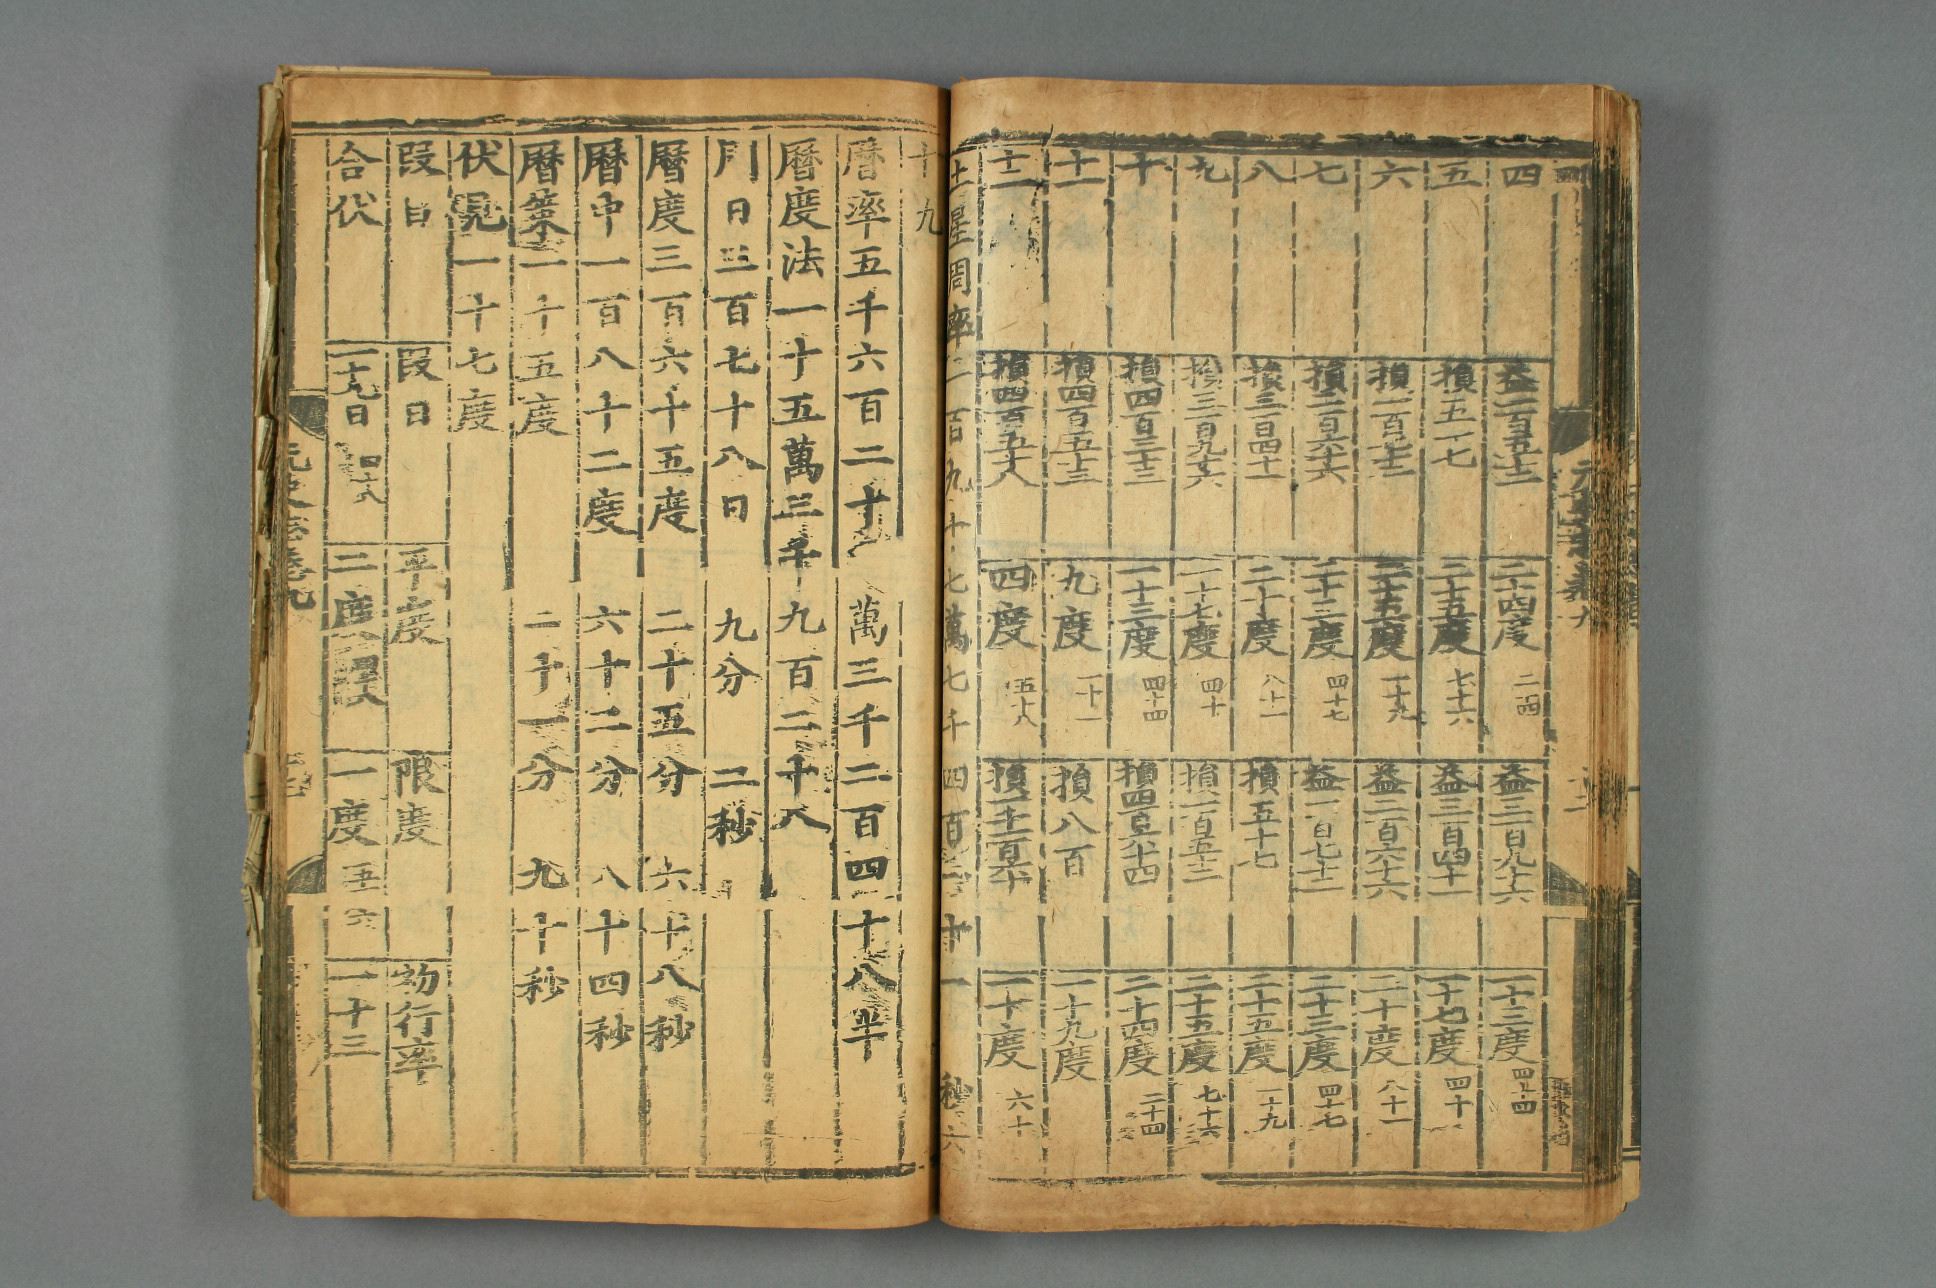 四 益二百五十三 二十四度 二四 益三百九十六 一十三度 四十四
五 損五十七 二十五度 七十六 益三百四十一 一十七度 四十
六 損一百七十二 二十五度 一十九 益二百六十六 二十度 八十一
七 損二百六十六 二十三度 四十七 益一百七十二 二十三度 四十七
八 損三百四十一 二十度 八十一 損五十七 二十五度 一十九
九 損三百九十六 一十七度 四十 損二百五十三 二十五度 七十六
十 損四百三十三 一十三度 四十四 損四百六十四 二十四度 二十四
十一 損四百五十三 九度 一十一 損八百 一十九度
十二 損四百五十八 四度 五十八 損一千一百六十 一十度 六十
土星周率一百九十七萬七千四百一十一 秒六
十九
曆率五千六百二十二萬三千二百四十八半
曆度法一十五萬三千九百二十八
周日三百七十八日 九分 二秒
曆度三百六十五度 二十五分 六十八秒
曆中一百八十二度 六十二分 八十四秒
曆策一十五度 二十一分 九十秒
伏見一十七度
段目 段日 平度 限度 初行率
合伏 一十九日 四十八 二度 四十八 一度 五十六 一十三
元史志卷九